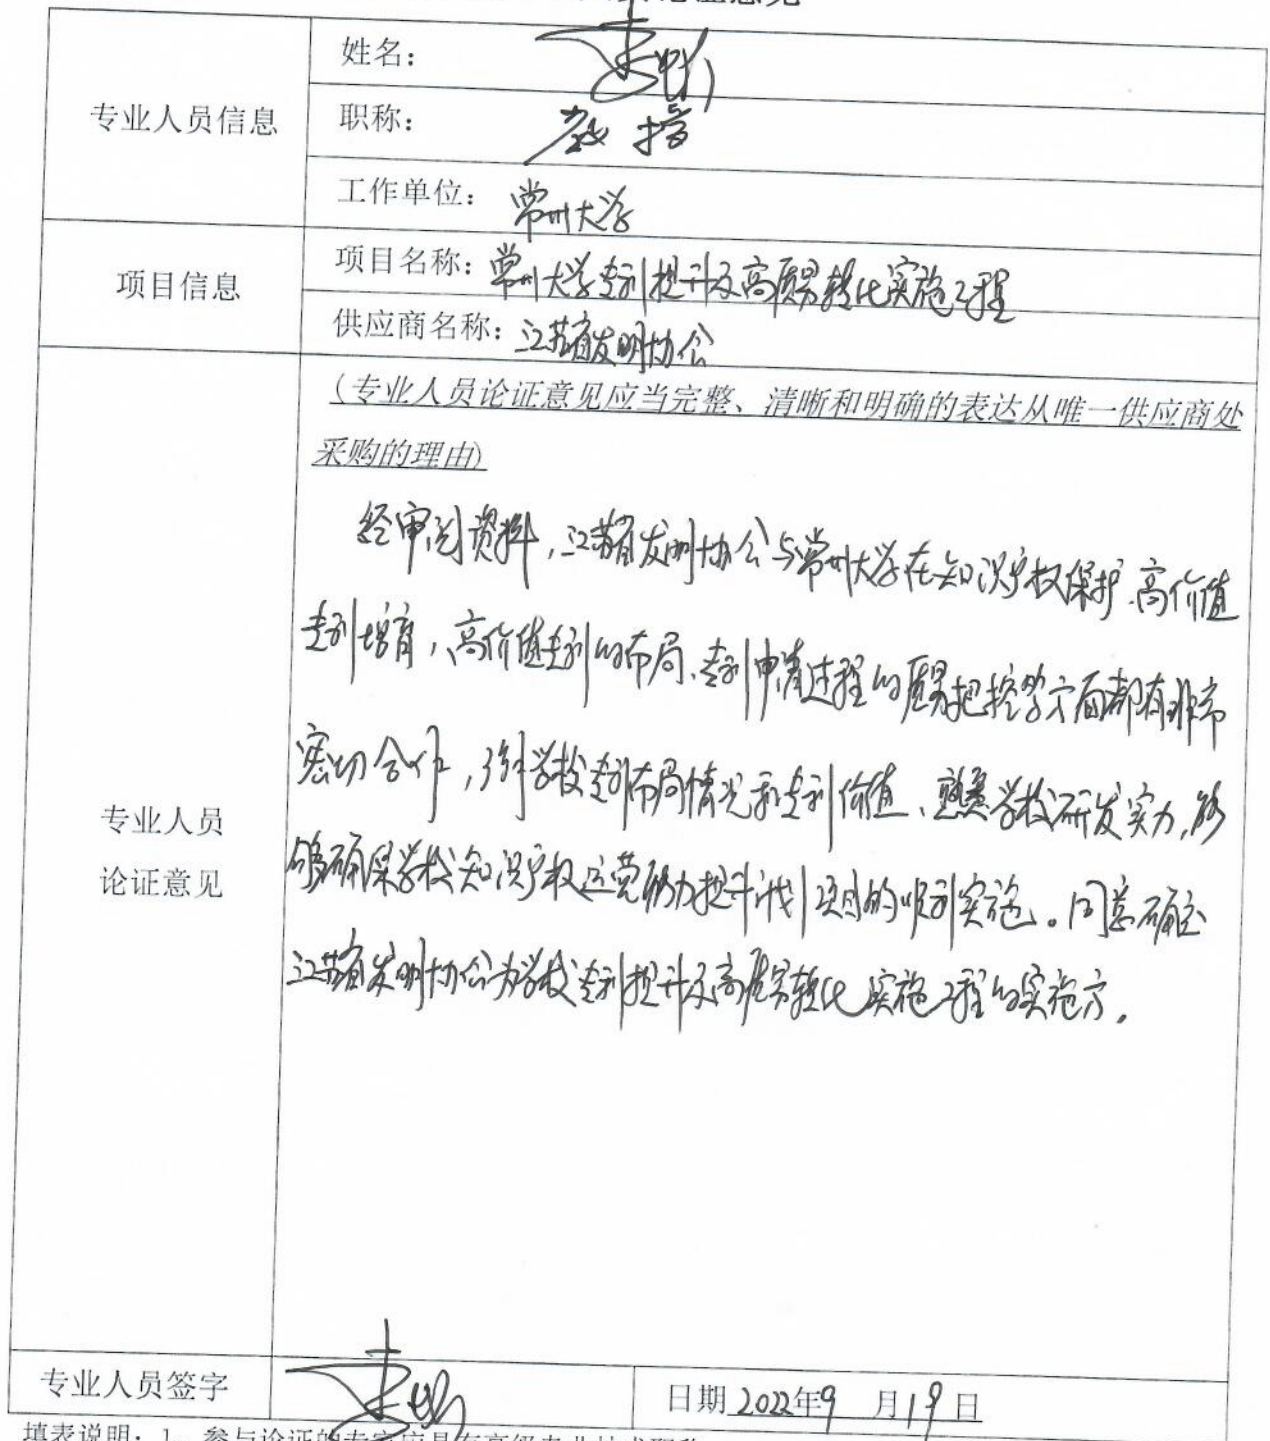 证意见
专业人员信息
姓名：
职称： 教授
工作单位： 常州大学
项目信息
项目名称： 常州大学专利提升及高质量转化实施工程
供应商名称： 江苏省发明协会
专业人员
论证意见
（专业人员论证意见应当完整、清晰和明确的表达从唯一供应商处
采购的理由）
经审阅资料，江苏省发明协会与常州大学在知识产权保护、高价值
专利培育，高价值专利的布局、专利申请过程的质量把控等方面都有非常
密切合作，了解学校专利布局情况和专利价值、熟悉学校研发实力，能
够确保学校知识产权运营能力提升计划项目的顺利实施。同意确定
江苏省发明协会为学校专利提升及高质量转化实施工程的实施方。
专业人员签字
日期 2022年9月19日
填表说明：1、参与论证的专家应具有高级专业技术职称